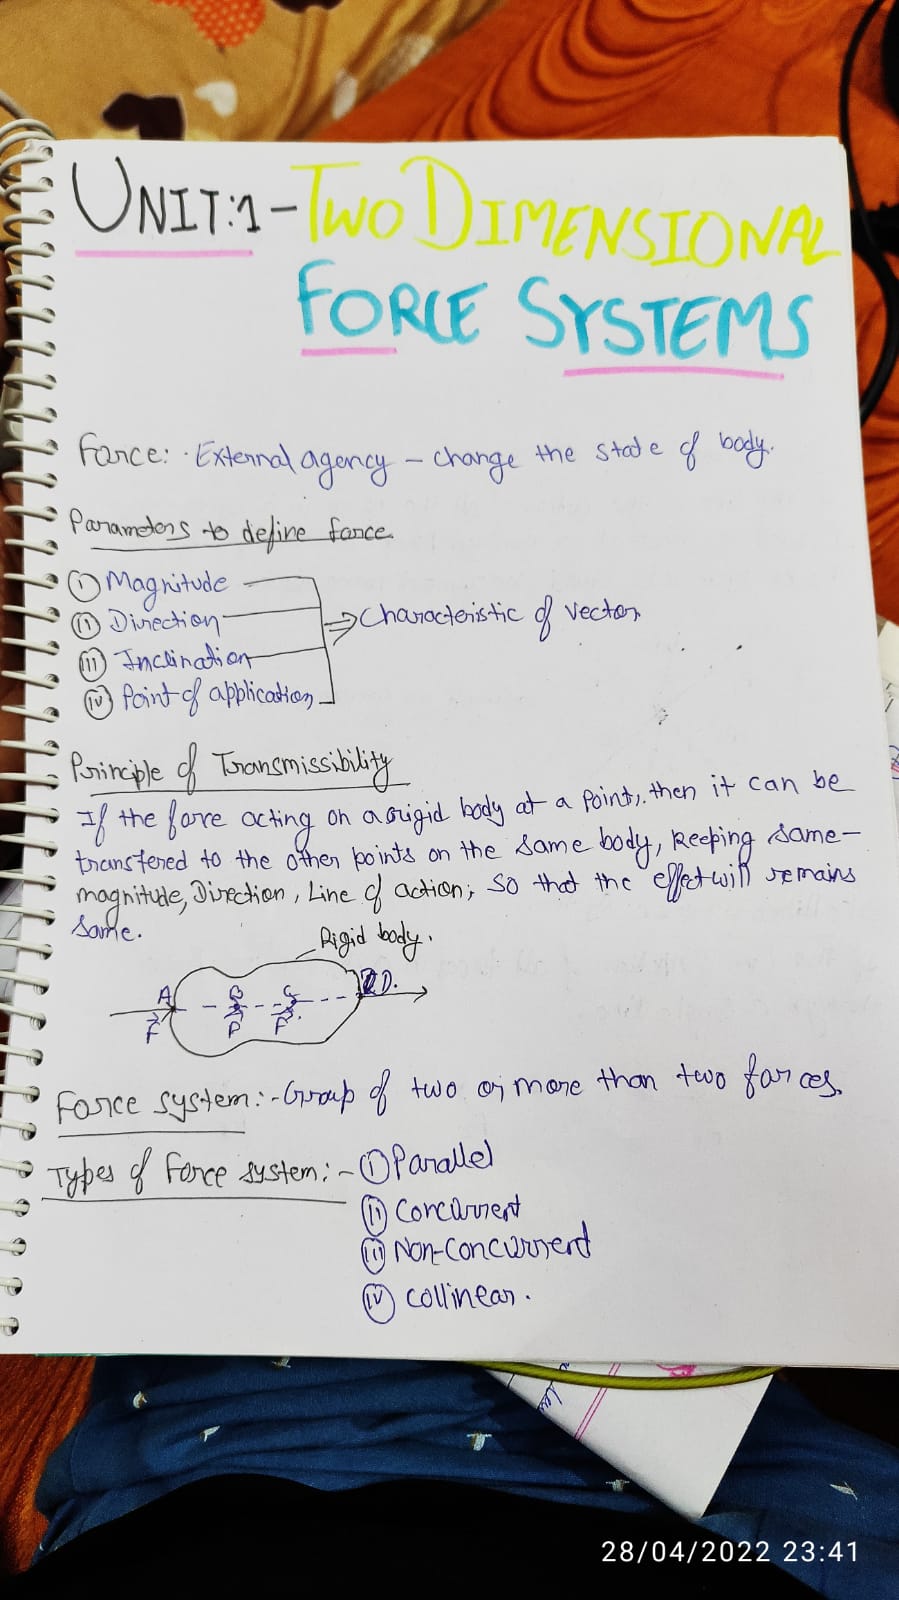 UNIT:1-TWO DIMENSIONAL
FORCE SYSTEMS
Force: · External agency – change the state of body.
Parameters to define force
(i) Magnitude
(ii) Direction
⇒ Characteristic of vector
(iii) Inclination
(iv) Point of application
Principle of Transmissibility
If the force acting on a rigid body at a point, then it can be
transfered to the other points on the same body, keeping same-
magnitude, Direction, Line of action; so that the effect will remains
same.
Rigid body.
A B C D.
F F F
Force system:- Group of two or more than two forces.
Types of Force system:- (i) Parallel
(ii) Concurrent
(iii) Non-Concurrent
(iv) Collinear.
28/04/2022 23:41